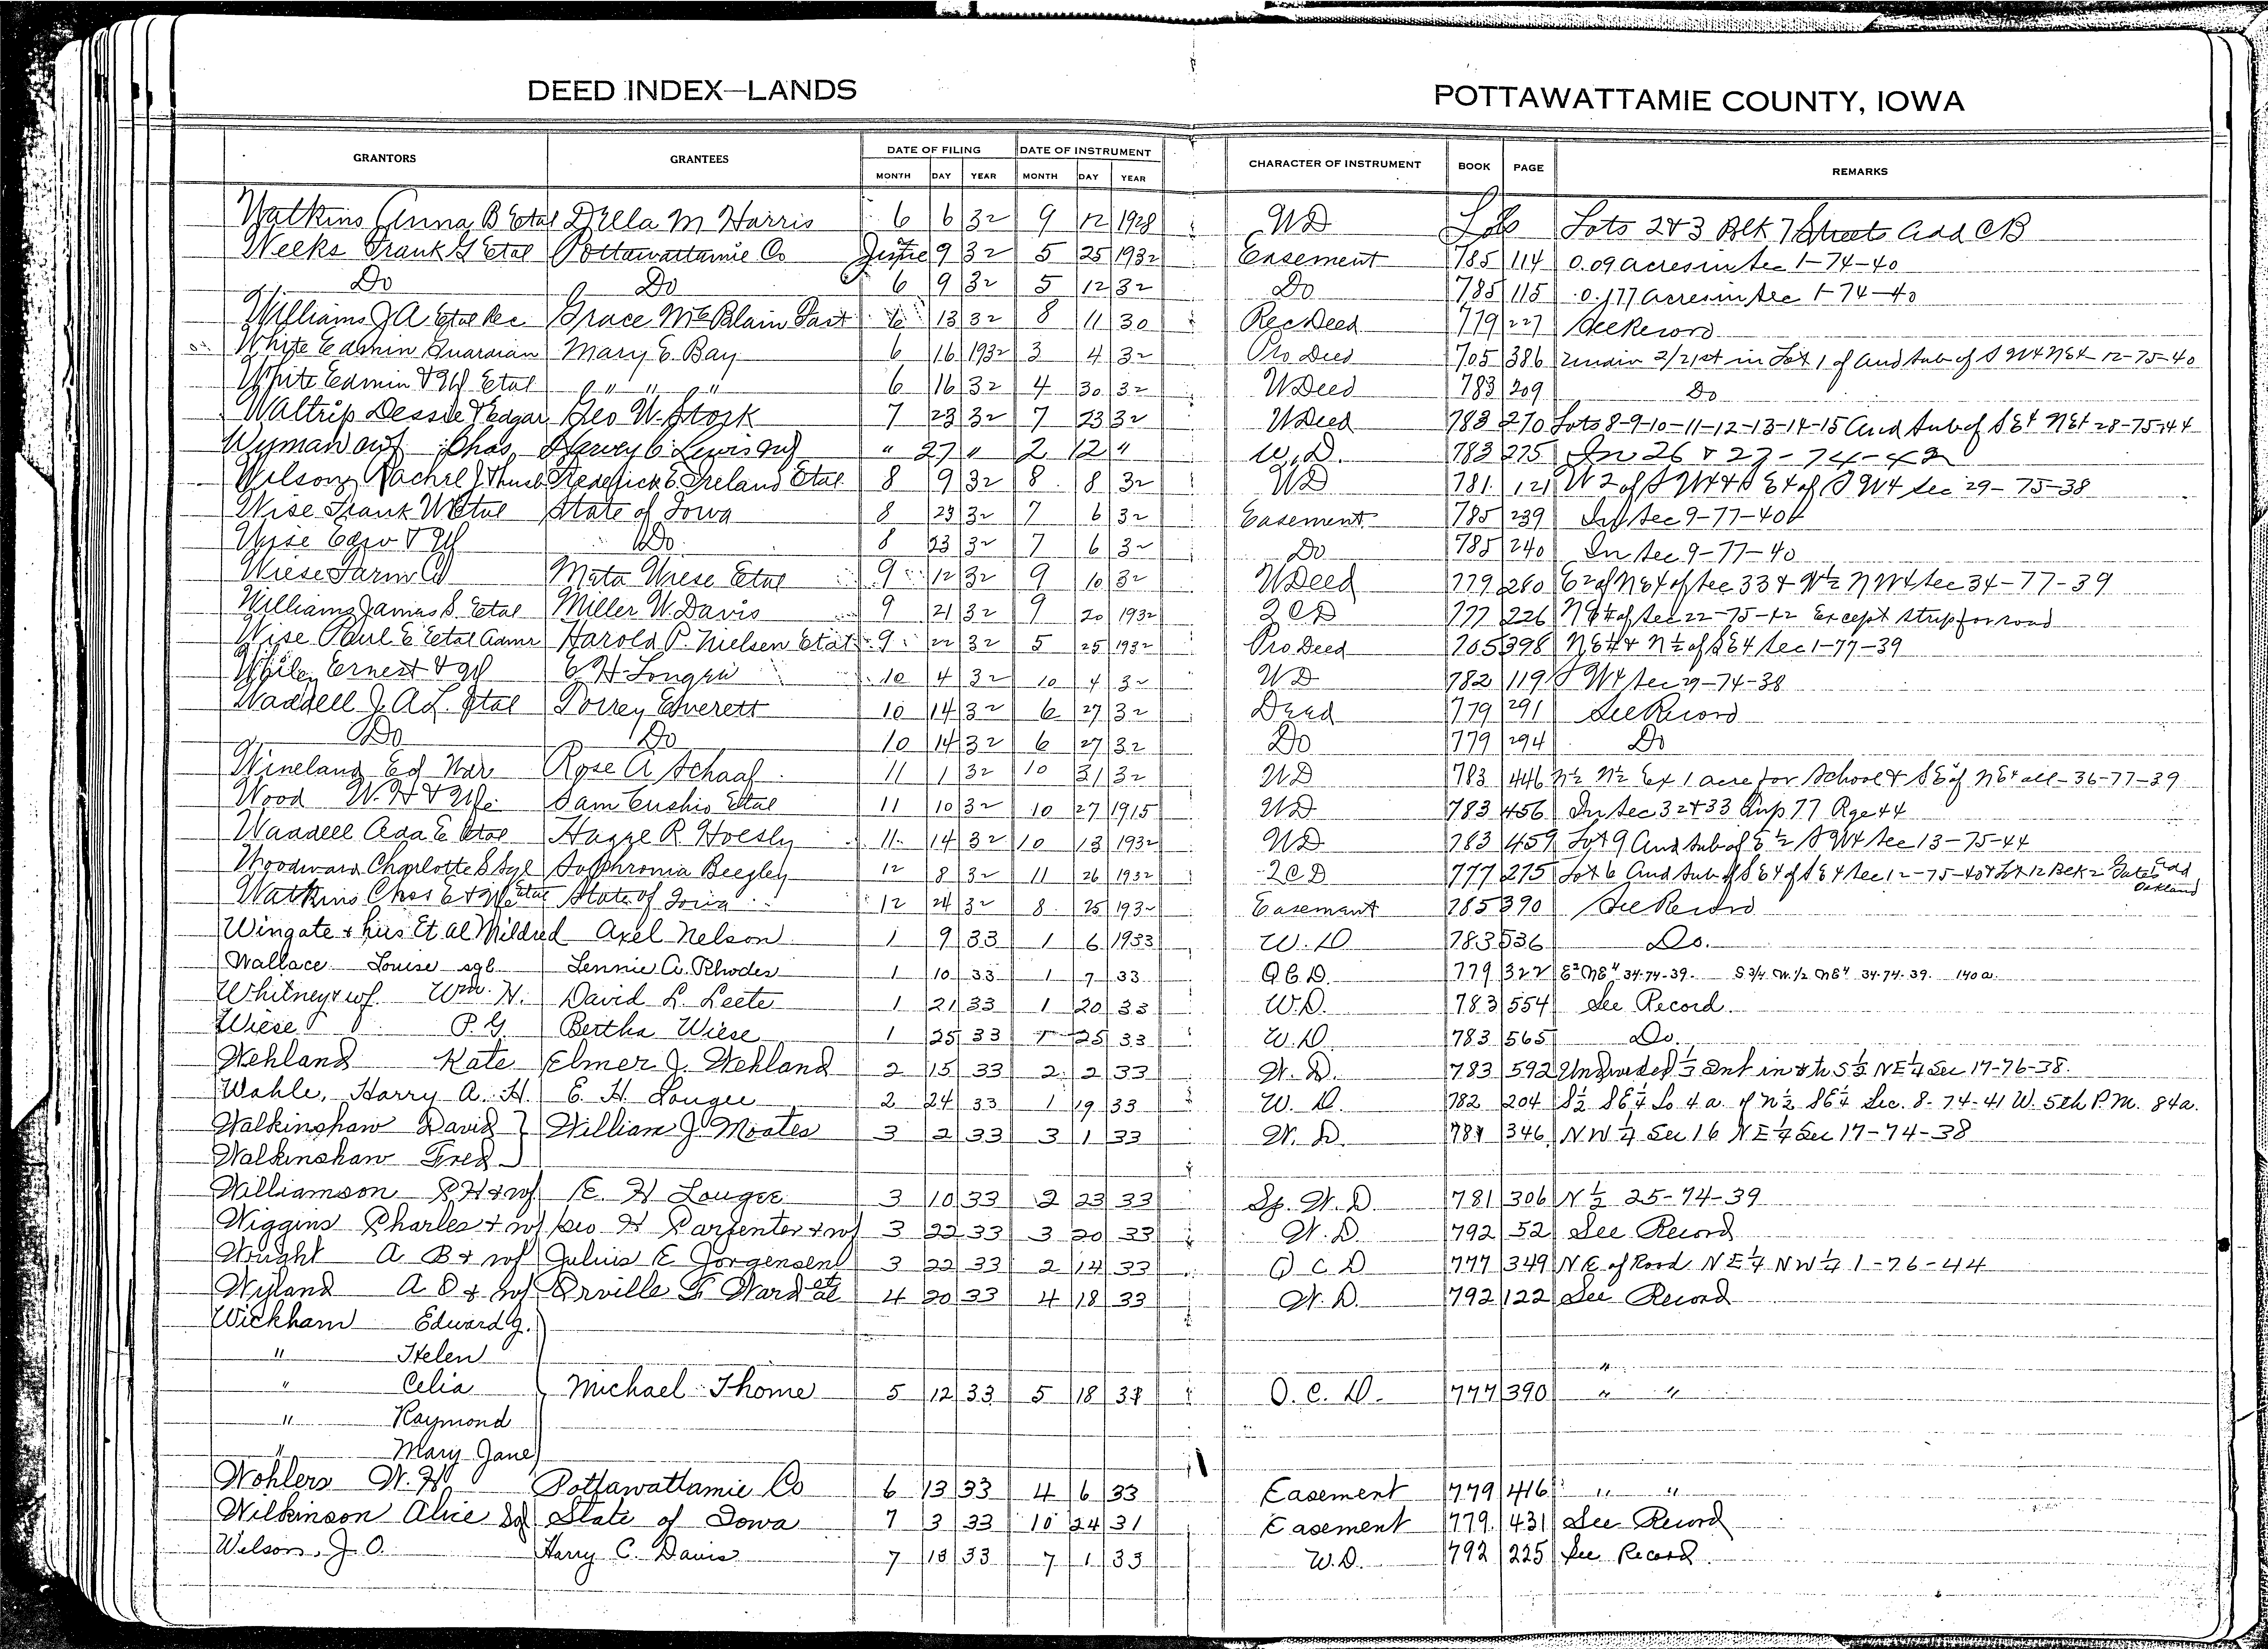 DEED INDEX—LANDS
POTTAWATTAMIE COUNTY, IOWA
GRANTORS GRANTEES DATE OF FILING DATE OF INSTRUMENT CHARACTER OF INSTRUMENT BOOK PAGE REMARKS
MONTH DAY YEAR MONTH DAY YEAR
Watkins Anna B Etal Della M Harris 6 6 32 9 12 1928 WD Lots 2&3 Blk 7 Streets Add CB
Weeks Frank G Etal Pottawattamie Co June 9 32 5 25 1932 Easement 785 114 0.09 acres in Sec 1-74-40
Do Do 6 9 32 5 12 32 Do 785 115 0.177 acres in Sec 1-74-40
Williams J A Etal Rec Grace McBlain Fast 6 13 32 8 11 30 Rec Deed 779 227 See Record
White Edmin Guardian Mary E. Bay 6 16 1932 3 4 32 Pro Deed 705 386 Undiv 2/21st in Lot 1 of Aud Sub of S W4 NE4 12-75-40
White Edmin & Wf Etal " " " 6 16 32 4 30 32 W Deed 783 209 Do
Waltrip Dessie & Edgar Geo W. Stork 7 23 32 7 23 32 W Deed 783 270 Lots 8-9-10-11-12-13-14-15 Aud Sub of SE4 NE4 28-75-44
Wyman & wf Chas, Harvey C. Lewis & wf " 27 " 2 12 " W.D. 783 275 In 26 & 27-74-42
Wilson, Rachel J & husb Frederick E. Ireland Etal 8 9 32 8 8 32 WD 781 121 W2 of S W4 & S E4 of S W4 Sec 29-75-38
Wise Frank W Etal State of Iowa 8 23 32 7 6 32 Easement 785 239 In Sec 9-77-40
Wise Edw & Wf Do 8 23 32 7 6 32 Do 785 240 In Sec 9-77-40
Wiese Farm Co Meta Wiese Etal 9 12 32 9 10 32 W Deed 779 260 E2 of NE4 of Sec 33 & W½ NW4 Sec 34-77-39
Williams James S. Etal Miller W. Davis 9 21 32 9 20 1932 QCD 777 226 NE4 of Sec 22-75-42 Except strip for road
Wise Paul E Etal Admr Harold P. Nielsen Etal 9 22 32 5 25 1932 Pro Deed 705 398 NE4 & N½ of SE4 Sec 1-77-39
Ernest & Wf E H Lougee 10 4 32 10 4 32 WD 782 119 S W4 Sec 29-74-38
Waddell J. A L. Etal Torrey Everett 10 14 32 6 27 32 Deed 779 291 See Record
Do Do 10 14 32 6 27 32 Do 779 294 Do
Wineland Ed Wdr Rose A Schaaf 11 1 32 10 31 32 WD 783 446 N½ N½ Ex 1 acre for School & SE of NE4 all-36-77-39
Wood W. H & Wife Sam Cushio Etal 11 10 32 10 27 1915 WD 783 456 In Sec 32&33 Twp 77 Rge 44
Waddell Ada E Etal Hazze R Hoesly 11 14 32 10 13 1932 WD 783 459 Lot 9 Aud Sub of E½ S W4 Sec 13-75-44
Woodward Charlotte S Sgl Sophronia Beegley 12 8 32 11 26 1932 QCD 777 275 Lot 6 Aud Sub of SE4 of SE4 Sec 12-75-40 & Lot 12 Blk 2 Gates Add Oakland
Watkins Chas E & Wf Etal State of Iowa 12 24 32 8 25 1932 Easement 785 390 See Record
Wingate & hus Et al Mildred Axel Nelson 1 9 33 1 6 1933 W.D 783 536 Do.
Wallace Louise sgl Lennie A. Rhodes 1 10 33 1 7 33 Q.C.D. 779 322 E² NE4 34.74.39. S 3/4 W. 1/2 NE4 34.74.39. 140 a.
Whitney & wf Wm. H. David L. Leete 1 21 33 1 20 33 W.D. 783 554 See Record.
Wiese P. G. Bertha Wiese 1 25 33 1 25 33 W.D 783 565 Do.
Wehland Kate Elmer J. Wehland 2 15 33 2 2 33 W.D. 783 592 Undivided ⅓ Int in & to S½ NE¼ Sec 17-76-38.
Wahle, Harry A. H. E. H. Lougee 2 24 33 1 19 33 W.D. 782 204 S½ SE¼ So. 4 a. of N½ SE¼ Sec. 8-74-41 W. 5th P.M. 84a.
Walkinshaw David } William J. Moates 3 2 33 3 1 33 W.D. 781 346 N.W¼ Sec 16 NE¼ Sec 17-74-38
Walkinshaw Fred
Williamson R H & wf E. H Lougee 3 10 33 2 23 33 Sp. W.D. 781 306 N½ 25-74-39
Wiggins Charles & wf Geo H Carpenter & wf 3 22 33 3 20 33 W.D. 792 52 See Record
Wright A B & wf Julius E Jorgensen 3 22 33 2 14 33 Q C D 777 349 N.E of Road NE¼ NW¼ 1-76-44
Wyland A O & wf Orville F Ward et al 4 20 33 4 18 33 W.D. 792 122 See Record
Wickham Edward G.
" Helen
" Celia Michael Thome 5 12 33 5 18 33 Q.C.D. 777 390 " "
" Raymond
" Mary Jane
Wohlers W. H Pottawattamie Co 6 13 33 4 6 33 Easement 779 416 " "
Wilkinson Alice Sgl State of Iowa 7 3 33 10 24 31 Easement 779 431 See Record
Welson, J. O. Harry C. Davis 7 18 33 7 1 33 W.D. 792 225 See Record.